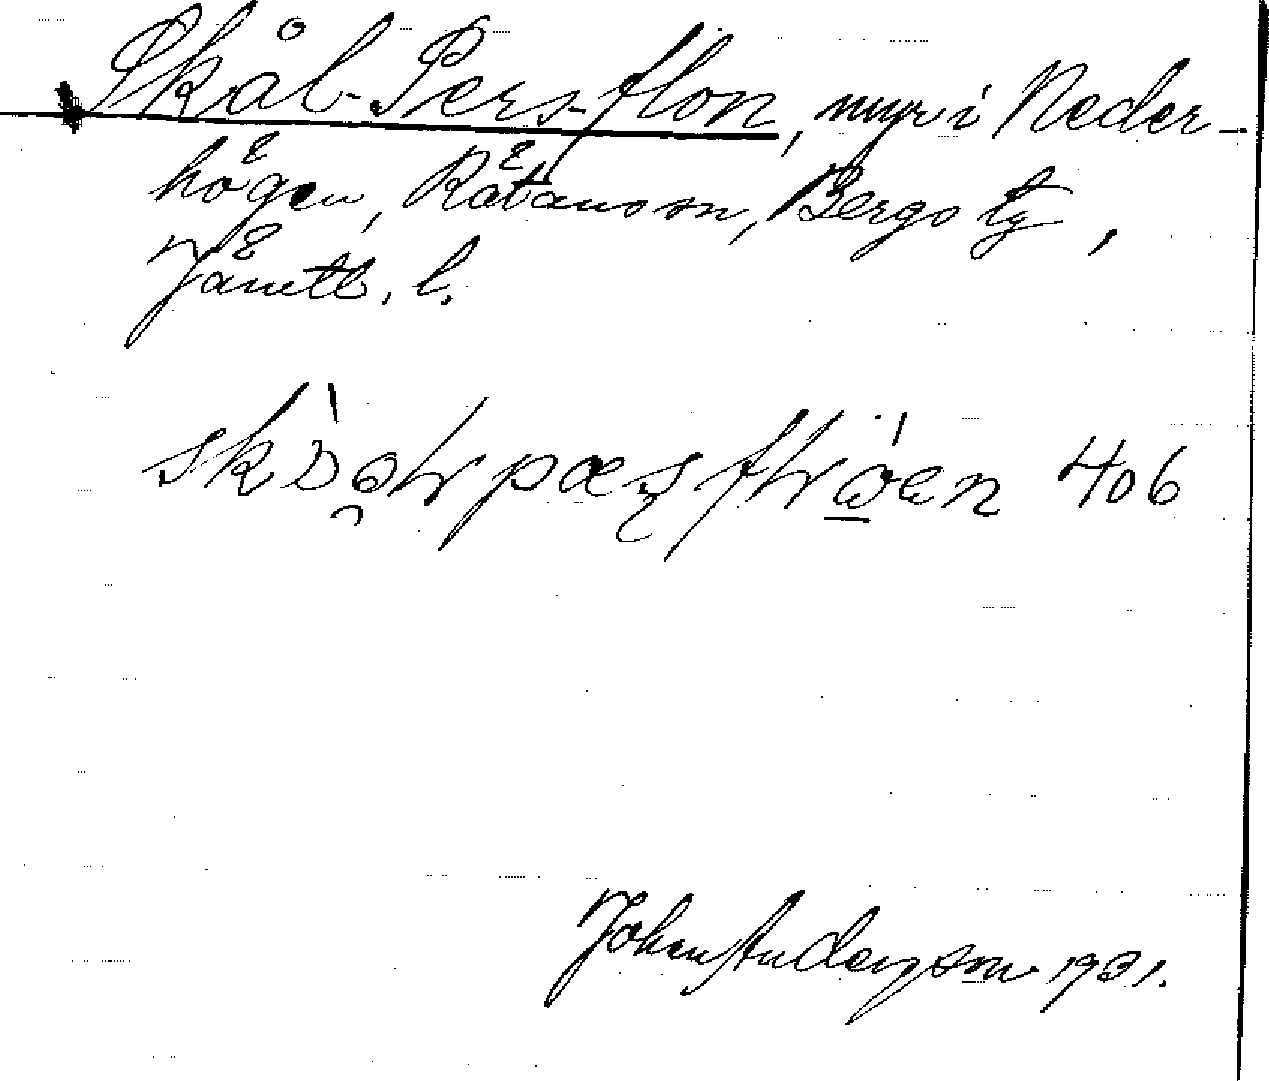 Skål-Pers-flon, myr i Neder-
högen, Rätans sn, Bergs tg,
Jämtl. l.
406
Johan Anderson 1931.